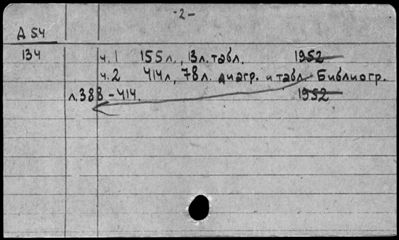 -2-
Д 54
134 ч. 1 155 л., 13 л. табл. 1952
ч. 2 414 л., 78 л. диагр. и табл. Библиогр.
л. 388-414. 1952